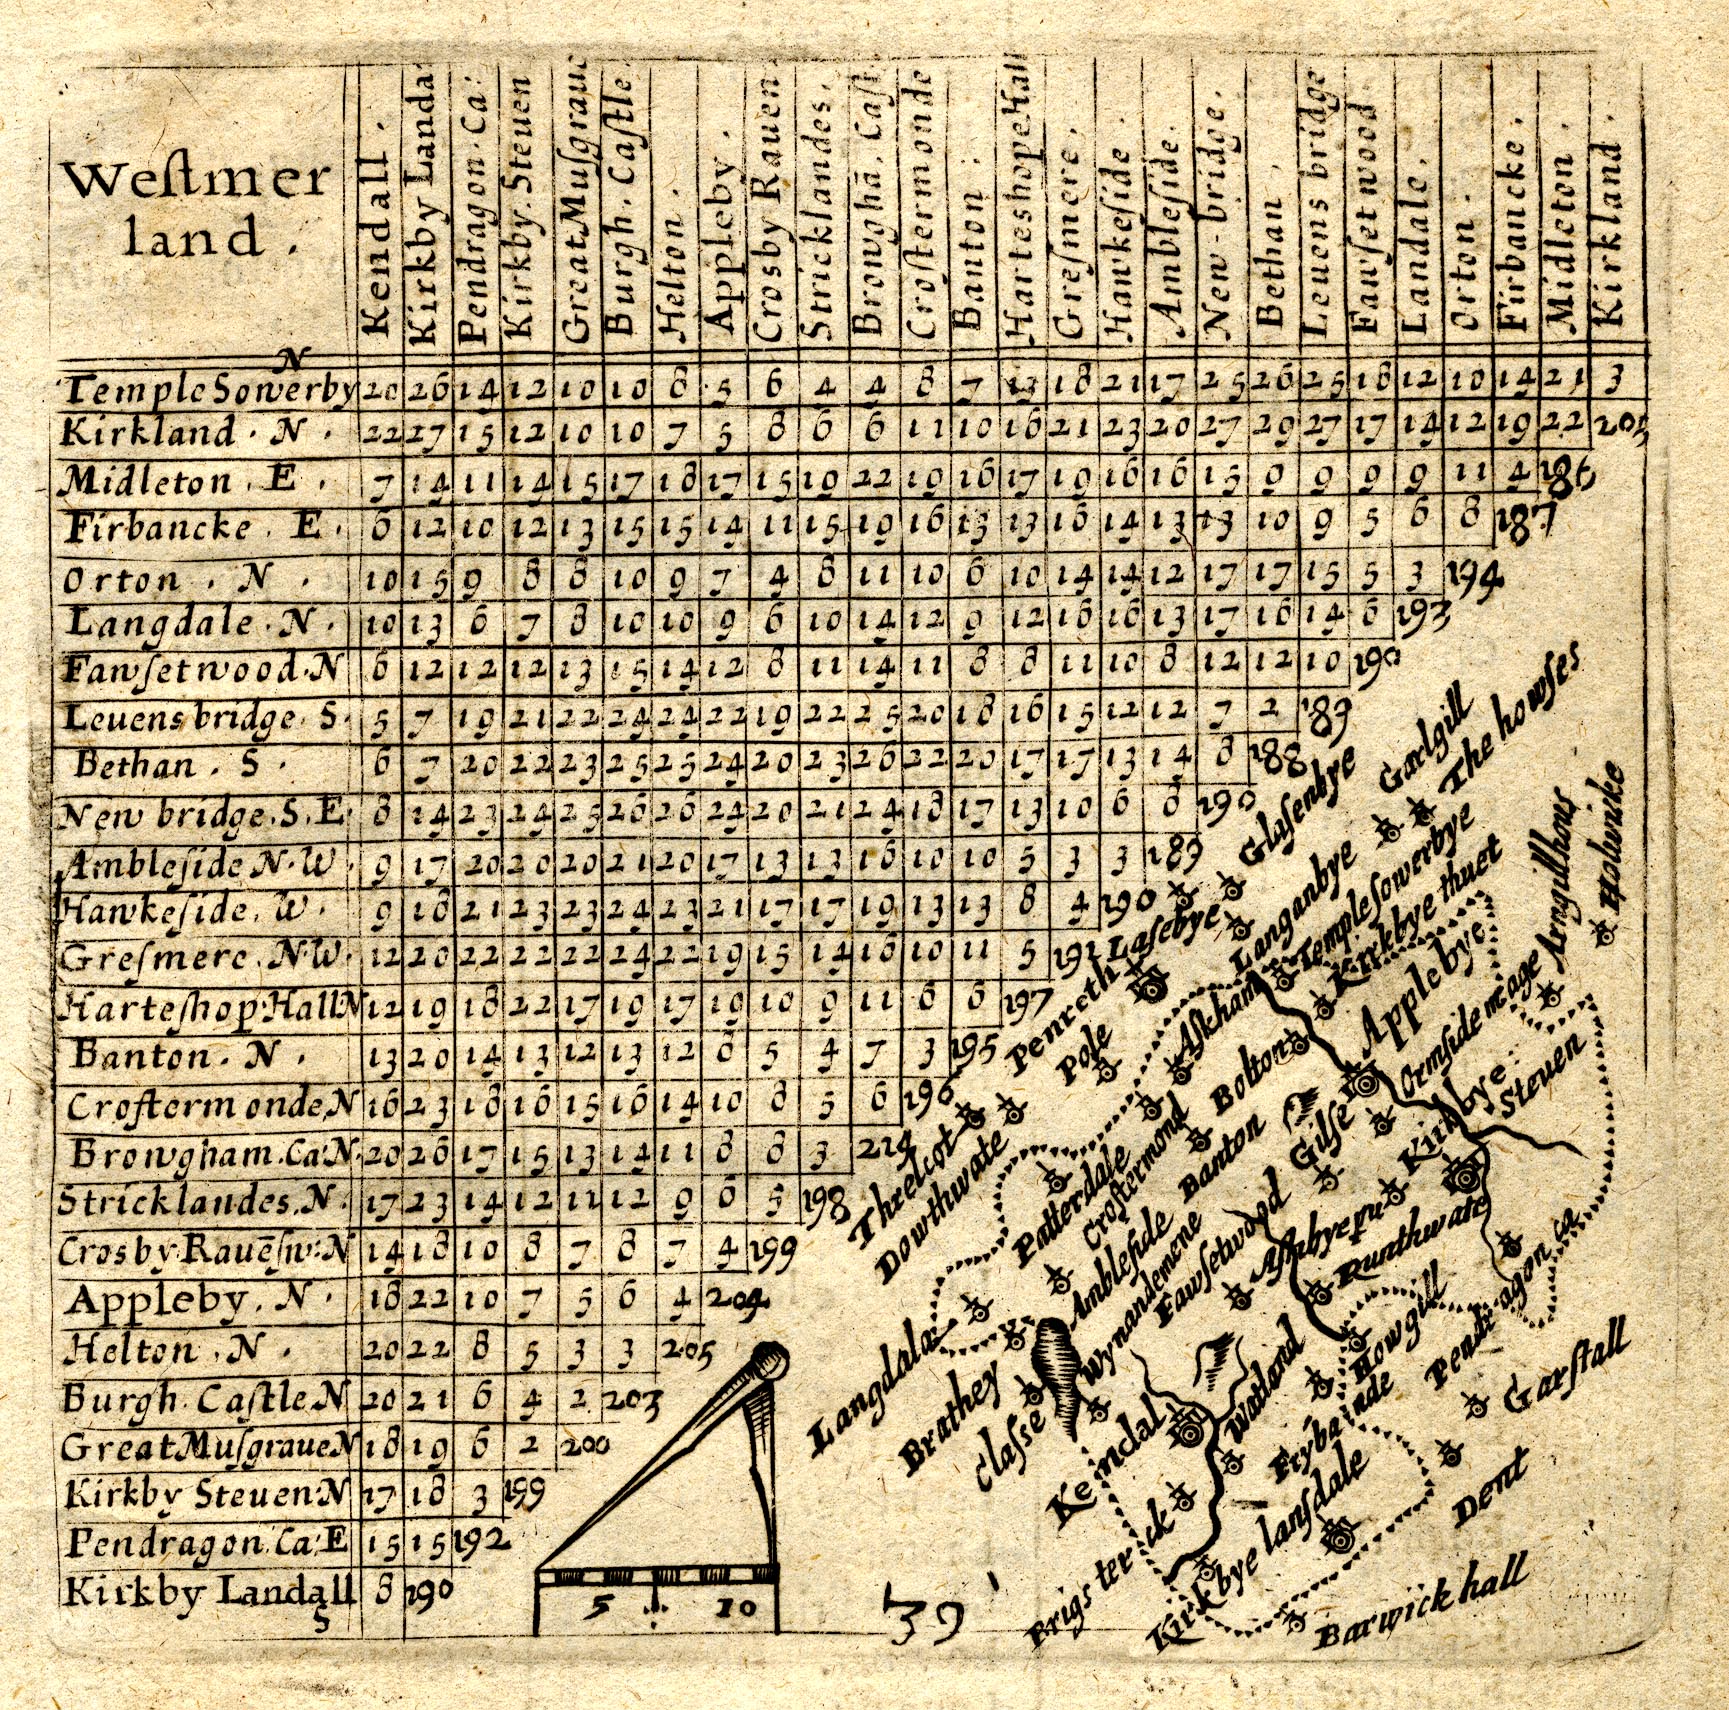 Weſtmer
land .
Kendall .
Kirkby Landa
Pendragon. Ca:
Kirkby. Steuen
Great Muſgraue
Burgh. Caſtle.
Helton .
Appleby .
Crosby Rauen
Stricklandes.
Browghā. Caſt
Croſtermonde
Banton .
Harteshope Hall
Greſmere.
Hawkeſide .
Ambleſide.
New-bridge.
Bethan .
Leuens bridge
Fawſetwood
Landale.
Orton .
Firbancke.
Midleton .
Kirkland .
Temple Sowerby N 20 26 14 12 10 10 8 5 6 4 4 8 7 13 18 21 17 25 26 25 18 12 10 14 21 3
Kirkland . N . 22 27 15 12 10 10 7 5 8 6 6 11 10 16 21 23 20 27 29 27 17 14 12 19 22 205
Midleton . E . 7 14 11 14 15 17 18 17 15 19 22 19 16 17 19 16 16 15 9 9 9 9 11 4 186
Firbancke . E . 6 12 10 12 13 15 15 14 11 15 19 16 13 13 16 14 13 13 10 9 5 6 8 187
Orton . N . 10 15 9 8 8 10 9 7 4 8 11 10 6 10 14 14 12 17 17 15 5 3 194
Langdale . N . 10 13 6 7 8 10 10 9 6 10 14 12 9 12 16 16 13 17 16 14 6 193
Fawſetwood . N 6 12 12 12 13 15 14 12 8 11 14 11 8 8 11 10 8 12 12 10 190
Leuens bridge . S . 5 7 19 21 22 24 24 22 19 22 25 20 18 16 15 12 12 7 2 189
Bethan . S . 6 7 20 22 23 25 25 24 20 23 26 22 20 17 17 13 14 8 188
New bridge . S . E 8 14 23 24 25 26 26 24 20 21 24 18 17 13 10 6 8 190
Ambleſide N . W . 9 17 20 20 20 21 20 17 13 13 16 10 10 5 3 3 189
Hawkeſide . W . 9 18 21 23 23 24 23 21 17 17 19 13 13 8 4 190
Greſmere . N . W . 12 20 22 22 22 24 22 19 15 14 16 10 11 5 191
Harteſhop Hall N 12 19 18 22 17 19 17 19 10 9 11 6 6 197
Banton . N . 13 20 14 13 12 13 12 8 5 4 7 3 195
Croſtermonde, N 16 23 18 16 15 16 14 10 8 5 6 196
Browgham . Ca: N . 20 26 17 15 13 14 11 8 8 3 214
Stricklandes . N . 17 23 14 12 11 12 9 6 5 198
Crosby Rauēſw: N 14 18 10 8 7 8 7 4 199
Appleby . N . 18 22 10 7 5 6 4 204
Helton . N . 20 22 8 5 3 3 205
Burgh . Caſtle N 20 21 6 4 2 203
Great Muſgraue N 18 19 6 2 200
Kirkby Steuen: N 17 18 3 199
Pendragon Ca: E 15 15 192
Kirkby Landall S 8 190
5 10
39
Garlgill
The howſes
Glaſenbye
Langanbye
Templeſowerbye
Kirkbye thuet
Arngillhous
Halwike
Laſebye
Penreth
Pole
Aſkham
Appleby
Bolton
Ormſide
Kirkbye Steuen
Threlcot
Dowthwate
Patterdale
Croſtermond
Banton
Gilſe
Ambleſide
Wynandemene
Fawſetwood
Aſhbye
Runthwate
Langdala
Brathey
Claſſe
Kendal
Watland
Howgill
Pendragon ca
Garſtall
Frybainde
Dent
Brigsterick
Kirkbye lanſdale
Barwick hall